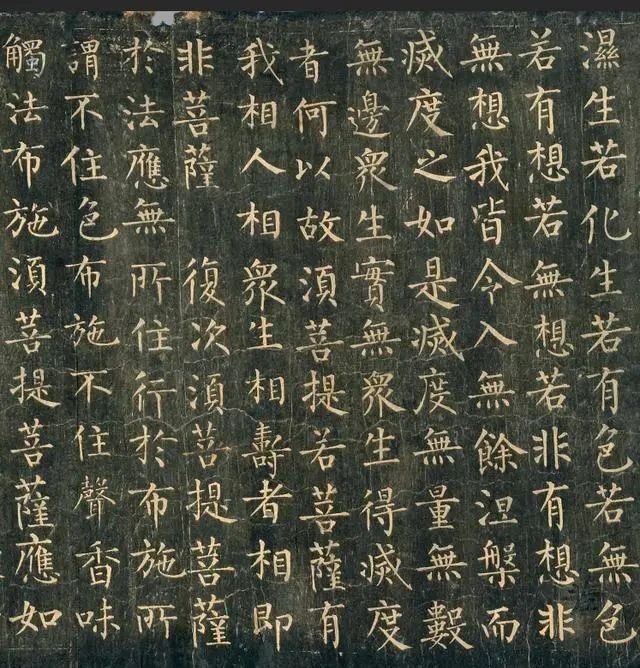 濕生若化生若有色若無色
若有想若無想若非有想非
無想我皆令入無餘涅槃而
滅度之如是滅度無量無數
無邊衆生實無衆生得滅度
者何以故須菩提若菩薩有
我相人相衆生相壽者相即
非菩薩　復次須菩提菩薩
於法應無所住行於布施所
謂不住色布施不住聲香味
觸法布施須菩提菩薩應如